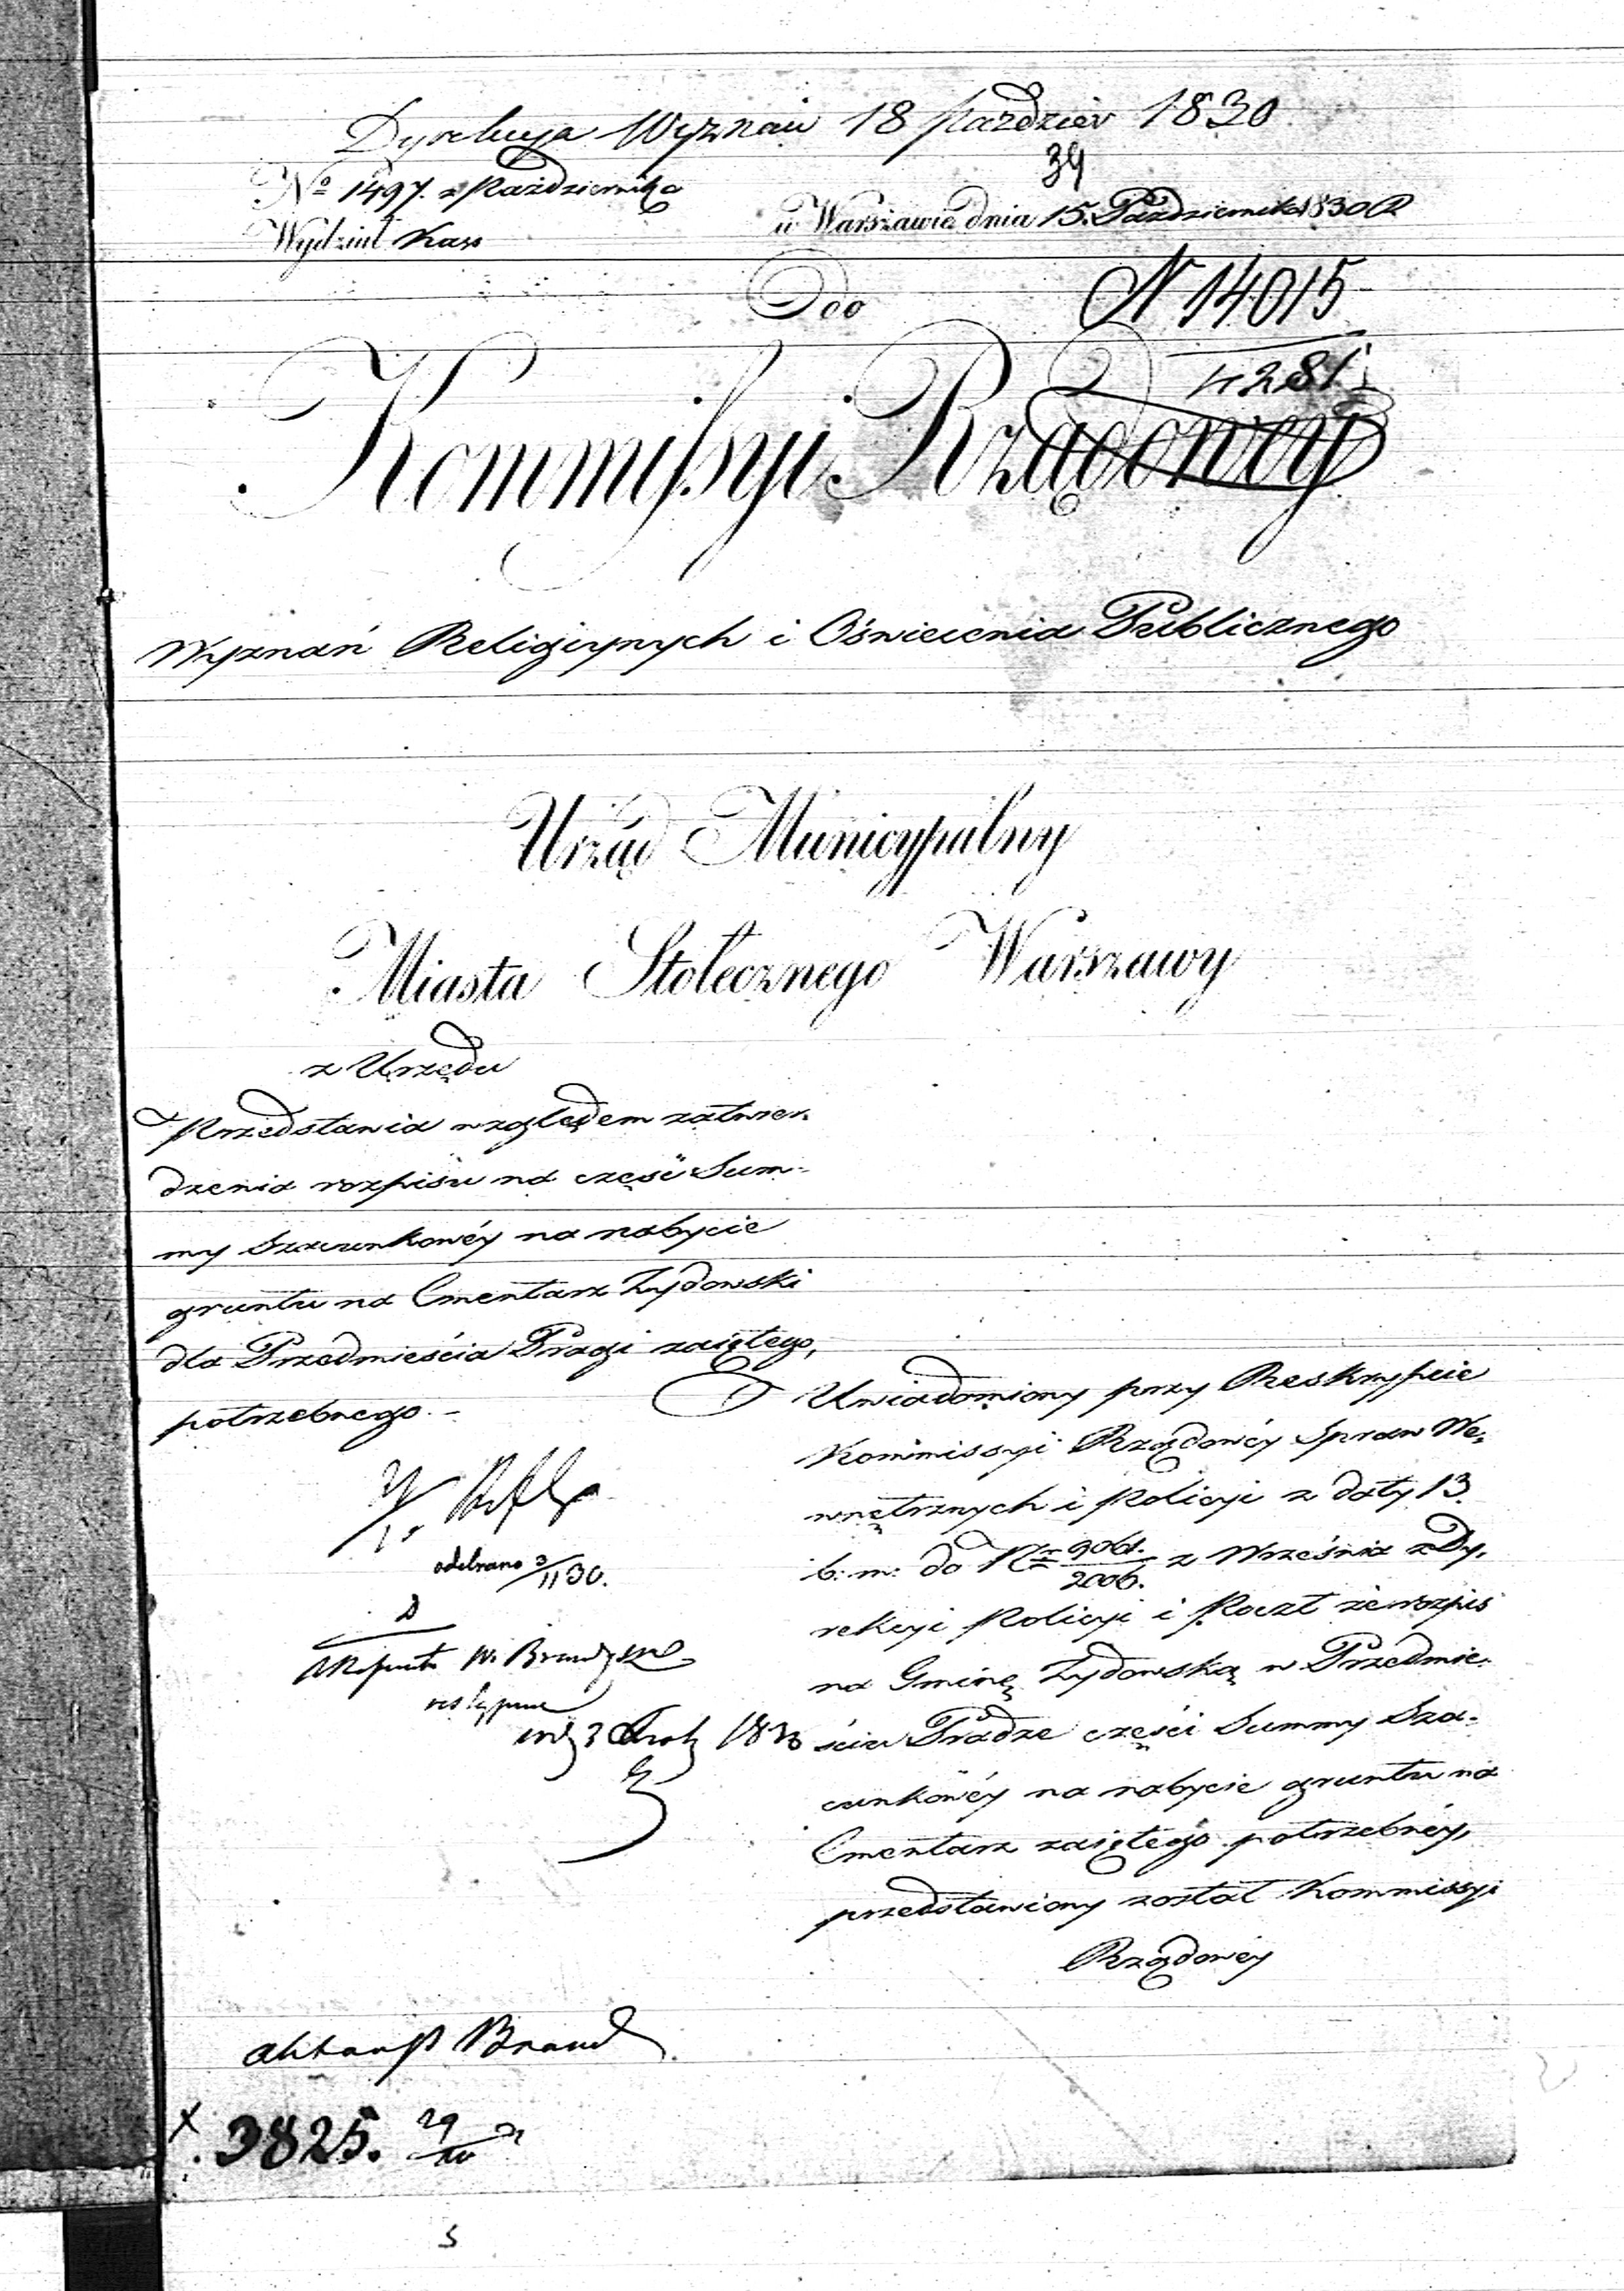 Dyrekcya Wyznań 18 Paździer 1830
34
No 1497. z Października
w Warszawie dnia 15. Października 1830 R
Wydział Kass
Do
N 14015
4281
Kommissyi Rządowey
Wyznań Religijnych i Oświecenia Publicznego
Urząd Municypalny
Miasta Stołecznego Warszawy
z Urzędu
Przedstawia względem zatwier-
dzenia rozpisu na część Sum-
my Szacunkowéy na nabycie
gruntu na Cmentarz Żydowski
dla Przedmieścia Pragi zaiętego,
potrzebnego.-
odebrano 3/11 30.
1830
Uwiadomiony przy Reskrypcie
Kommissyi Rządowéy Spraw We-
wnętrznych i Policyi z daty 13.
b: m: do Nra 9061./2006. z Września z Dy-
rekcyi Policyi i Poczt że rozpis
na Gminę Żydowską w Przedmie-
ściu Pradze części Summy Sza-
cunkowéy na nabycie gruntu na
Cmentarz zaiętego potrzebnéy,
przedstawiony został Kommissyi
Rządowéy
Brand
3825. 29/10
5